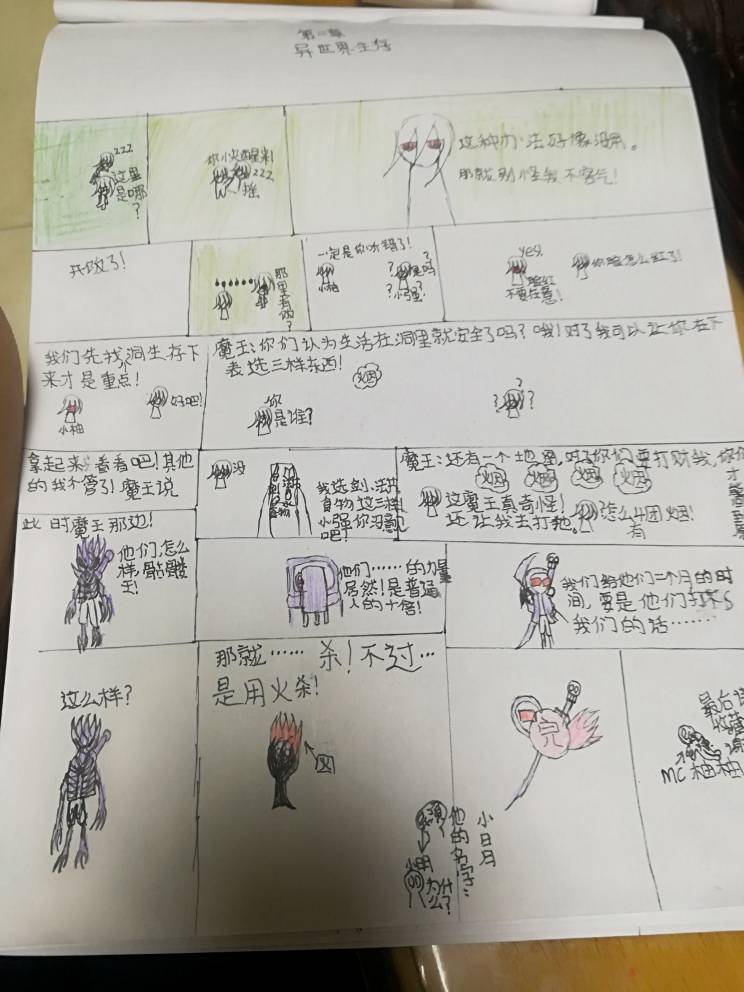 第二章
异世界生存
zzz
这里
是哪
?
你小
醒来!
zzz
摇
这种办法好像没用。
那就别怪我不客气!
开饭了!
••••••
那里有饭?
一定是你听错了!
小柚
?
是吗
?
小强
?
yes,
脸红
不要在意!
你脸怎么红了!
我们先找洞生存下
来才是重点!
小柚
好吧!
魔王:你们认为生活在洞里就安全了吗?哦!对了我可以让你在下
表选三样东西!
烟
你
是谁?
?
??
拿起来看看吧!其他
的我不管了!魔王说
没
我选剑、
食物这三样
小强你
吧!
魔王:还有一个地图,对了你们要打财我,你们
才
烟
烟
烟
烟
这魔王真奇怪!
还让我去打他。
怎么4团烟!
有
此时魔王那边!
他们怎么
样,骷髅
王!
他们……的力量
居然!是普通
人的十倍!
我们给他们二个月的时
间,要是他们打不
我们的话……
这么样?
那就……杀!不过…
是用火杀!
図
完
最后
收藏
MC柚柚
小日月
他的名字:
为什
么?